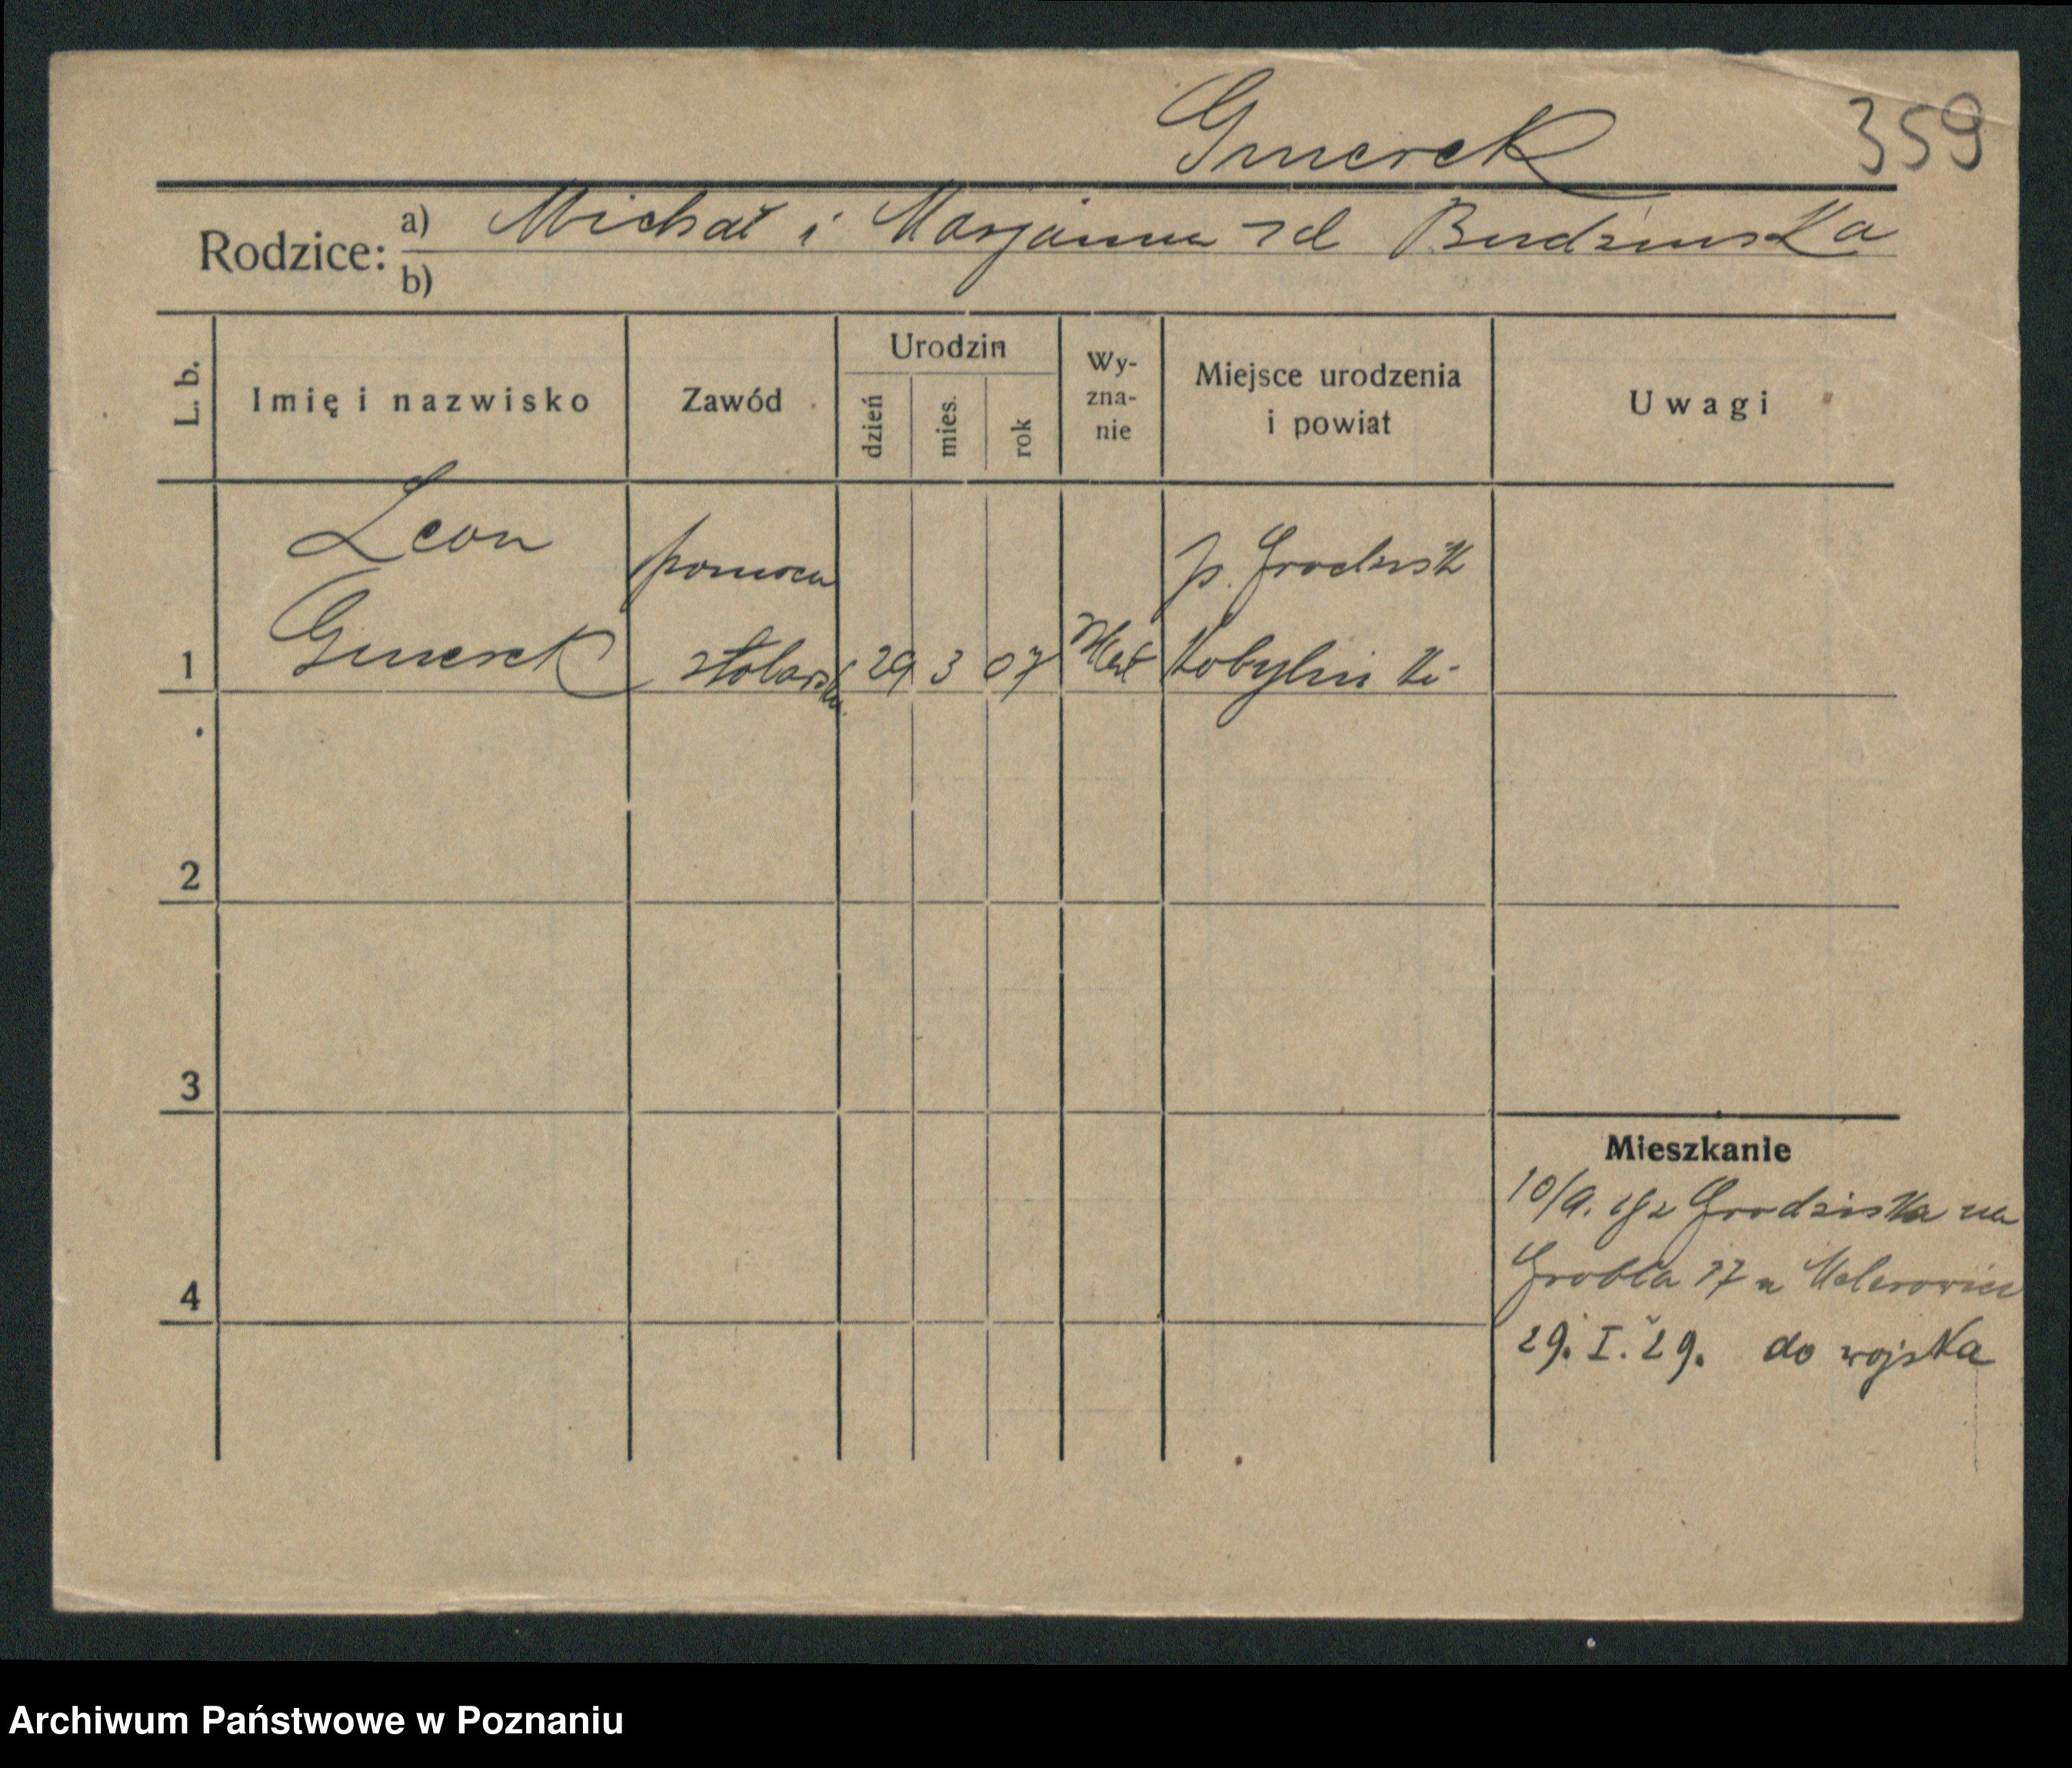 Gmerek 359
Rodzice: a) Michał i Marjanna zd Budzinska
b)
L. b. Imię i nazwisko Zawód Urodzin dzień mies. rok Wy-zna-nie Miejsce urodzenia i powiat Uwagi
Leon pomocn p. Grodzisk
1 Gmerek stolarski 29 3 07 Kat Kobylniki
2
3
Mieszkanie
10/9. z Grodziska na
4 Grobla 17 u
29. I. 29. do wojska
Archiwum Państwowe w Poznaniu